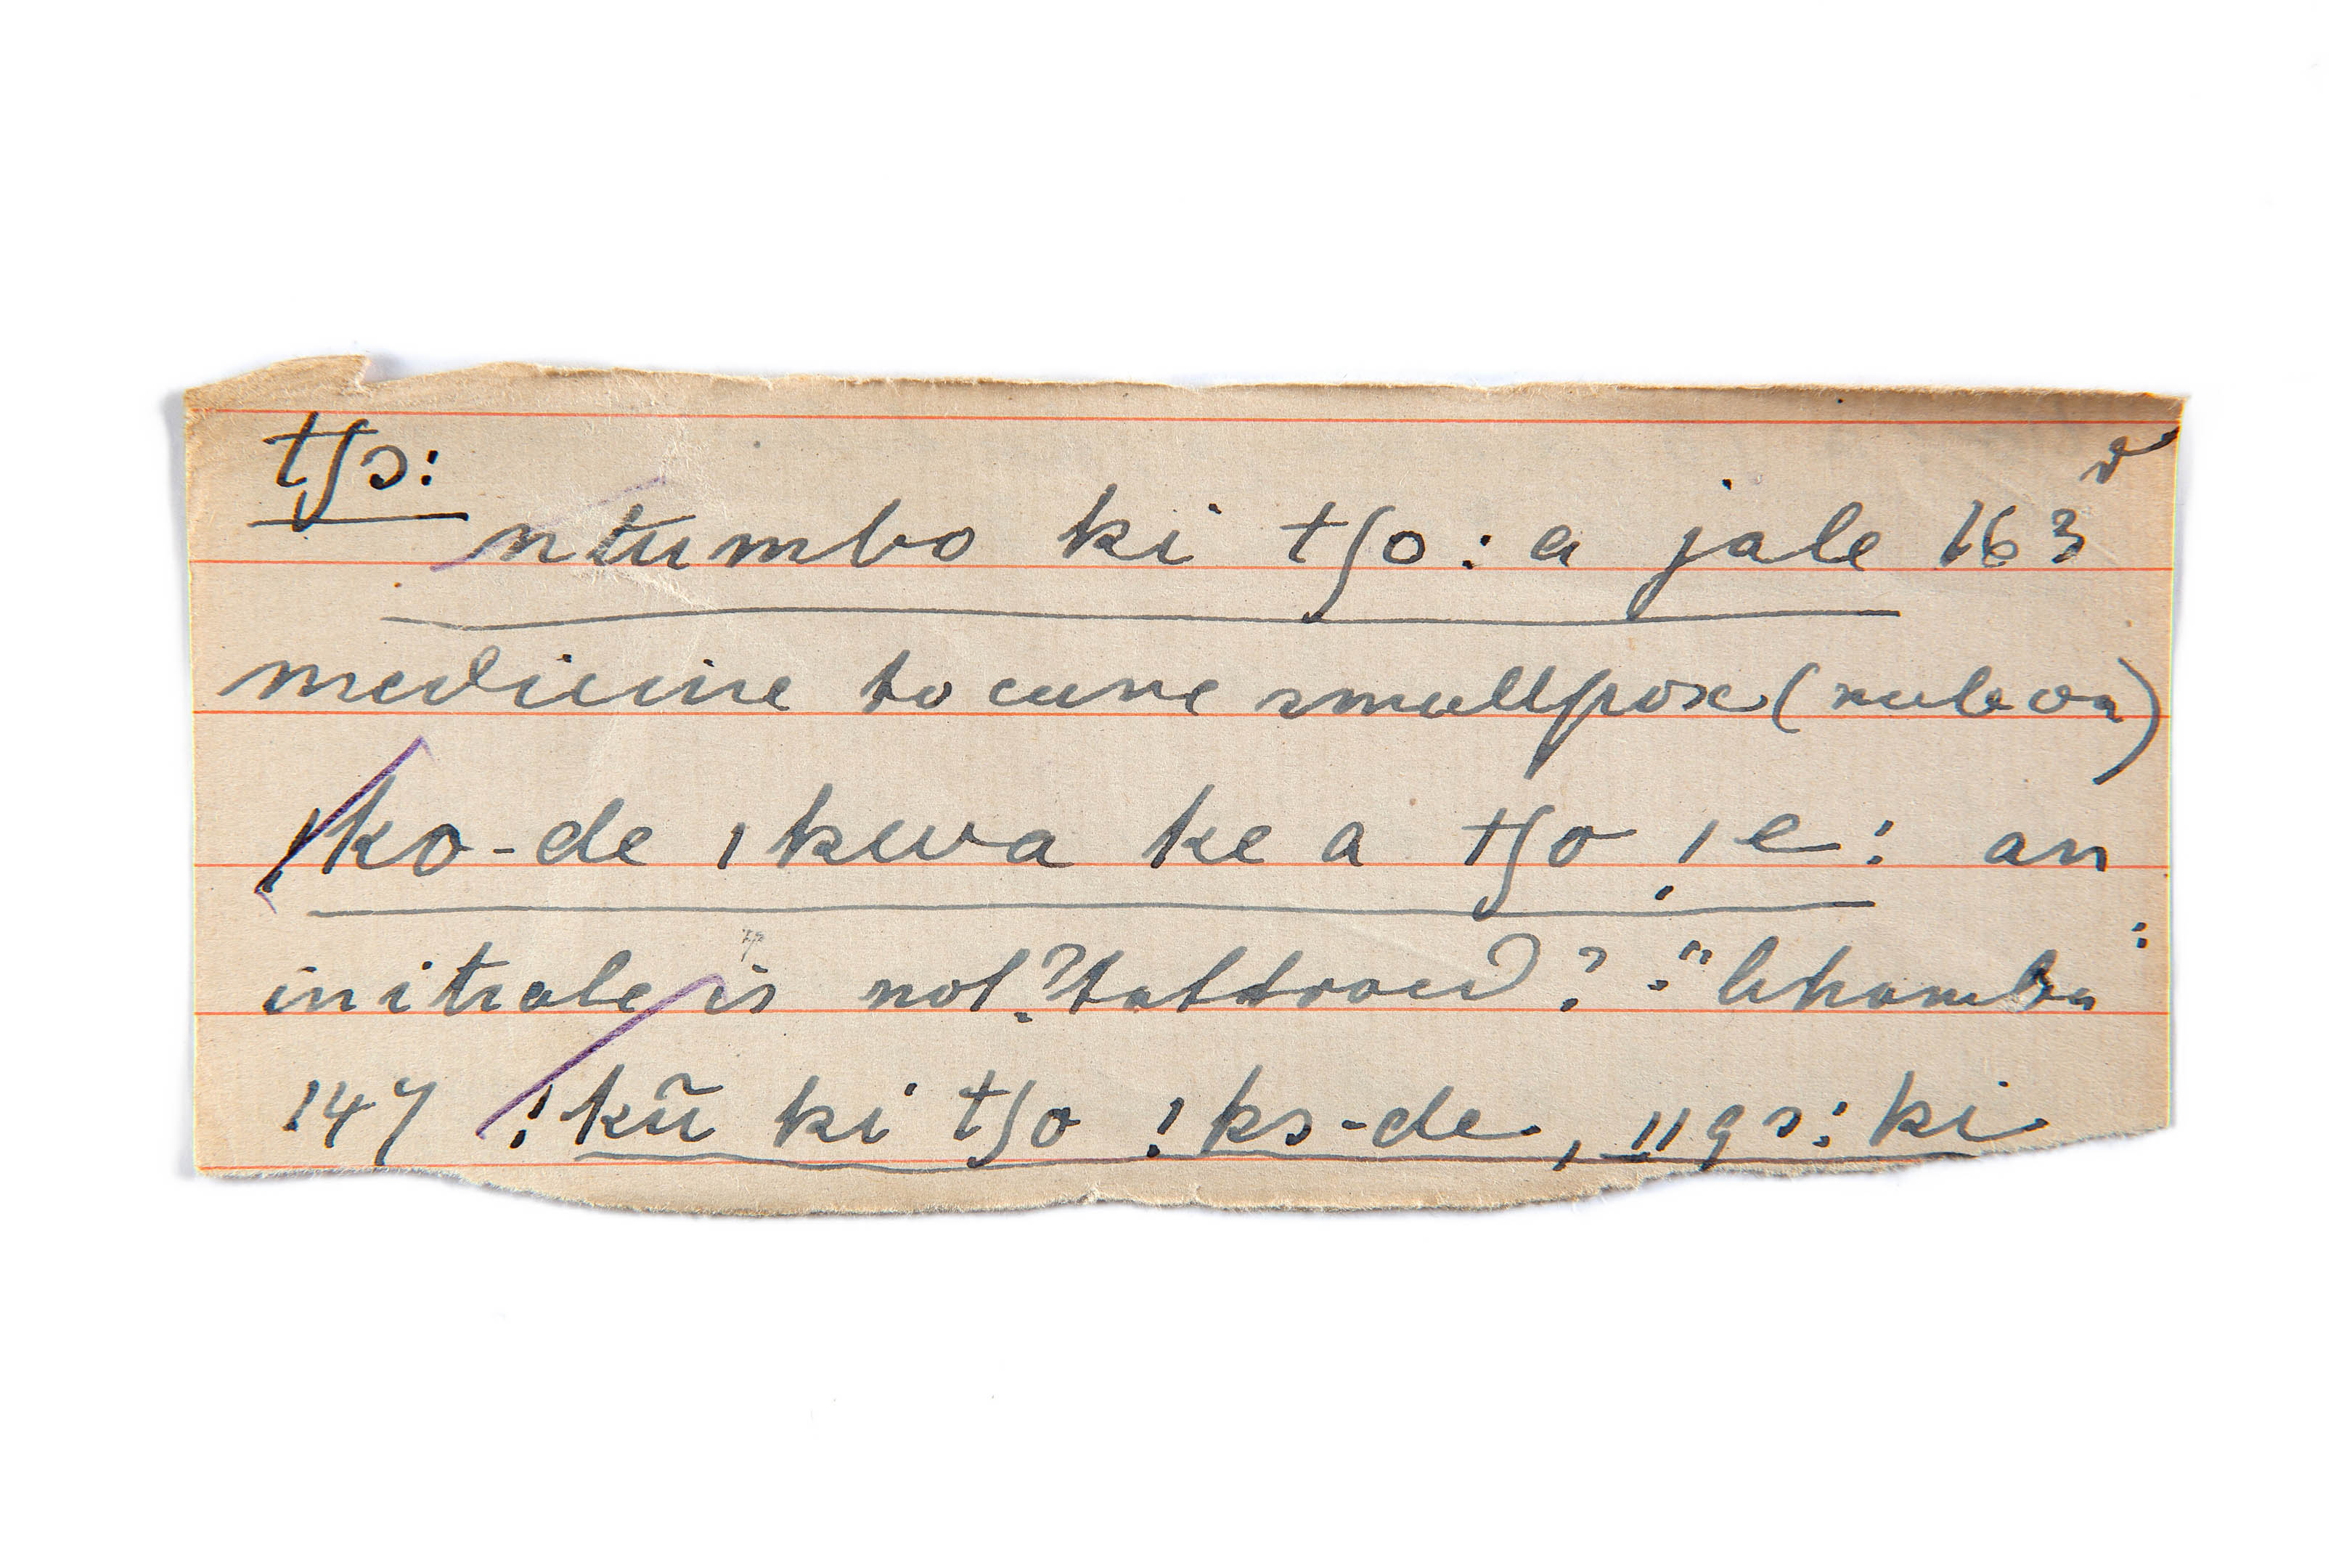 tʃɔ:
ntumbo ki tʃo: a jale 163
medicine to cure smallpox (rub on)
ǀko-de ǀkwa ke a tʃo ǀe: an
initiate is not ? tattooed ? :"
147 !kũ ki tʃo !kɔ-de, ǁgɔ: ki